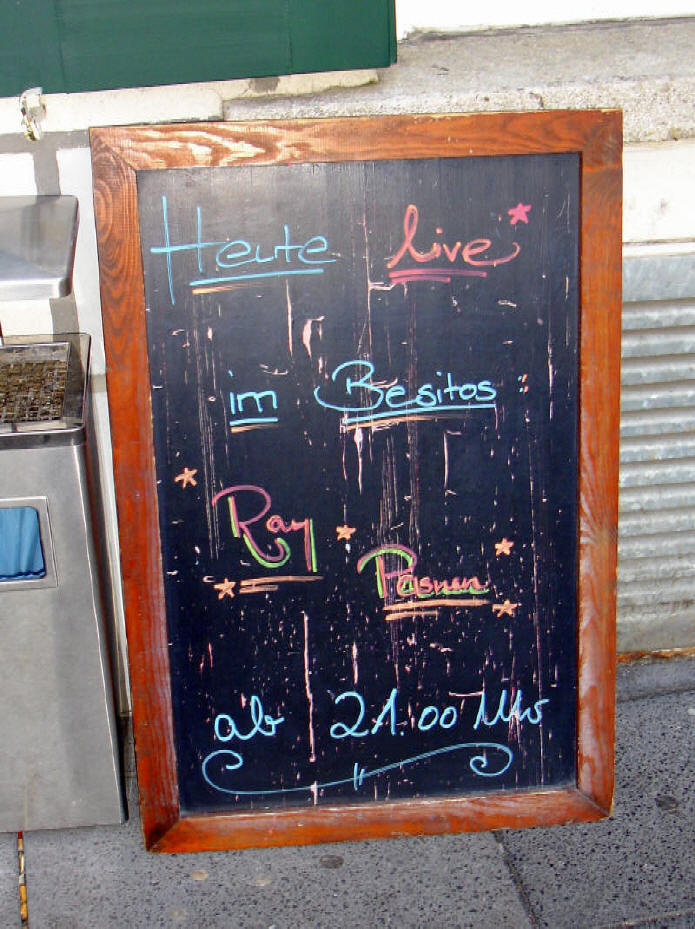 Heute live
im Besitos :
Ray
Pasnen
ab 21.00 Uhr